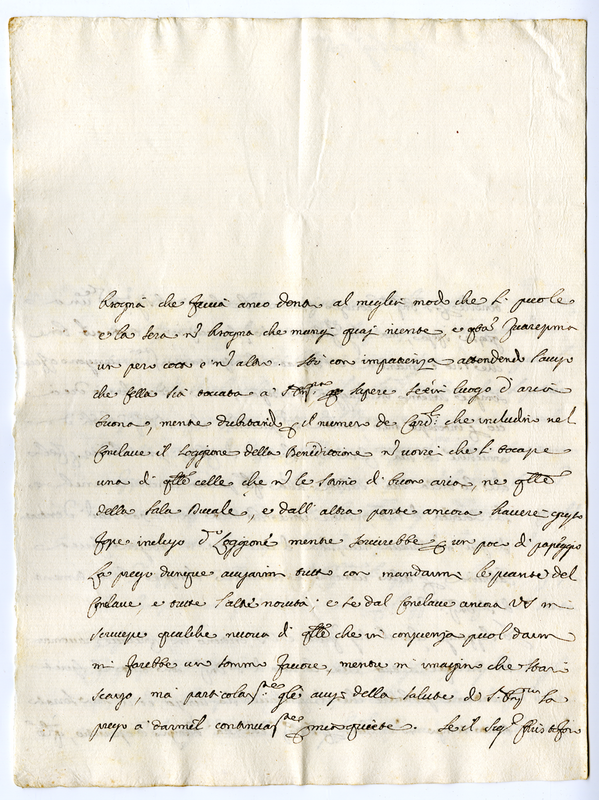 bisogna che faccia anco dona al meglior modo che si puole
e la sera n bisogna che mangi quasi niente, e
un pero cotto e n altro. Sto con impatienza attendendo l'aviso
che cella sia toccata a sapere se è in luogo d aria
buona, mentre dubitando il numero de Card.li che includin nel
Conclave il Loggione della Benedittione n vorrei che li toccasse
una di qlle celle che n le stimo di buon aria, ne qlle
della Sala Ducale, e dall' altra parte ancora havere gusto
fosse incluso d.o Loggione mentre servirebbe un poco di passeggio
La prego dunque avisarmi tutto con mandarmi le piante del
Conclave e tutte l'altre novità; e se dal Conclave ancora VS mi
scrivesse qualche nuova di qlle che in coscienza puol darmi
mi farebbe un sommo favore, mentre m imagino che starà
scarzo, ma particolar.te gli avisi della salute di S.
prego a darmeli continuam.te mia quiete. Se il Sig.